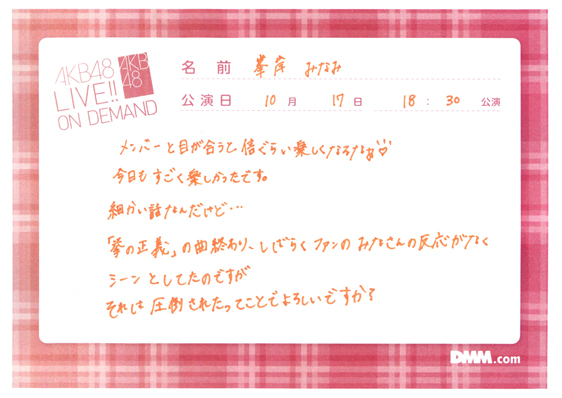 AKB48
LIVE!!
ON DEMAND
AKB
48
名前 峯岸 みなみ
公演日 10月 17日 18:30 公演
メンバーと目が合うと倍ぐらい楽しくなるなぁ♡
今日もすごく楽しかったです。
細かい話なんだけど…
「拳の正義」の曲終わり、しばらくファンのみなさんの反応がなく
シーンとしてたのですが
それは圧倒されたってことでよろしいですか?
DMM.com